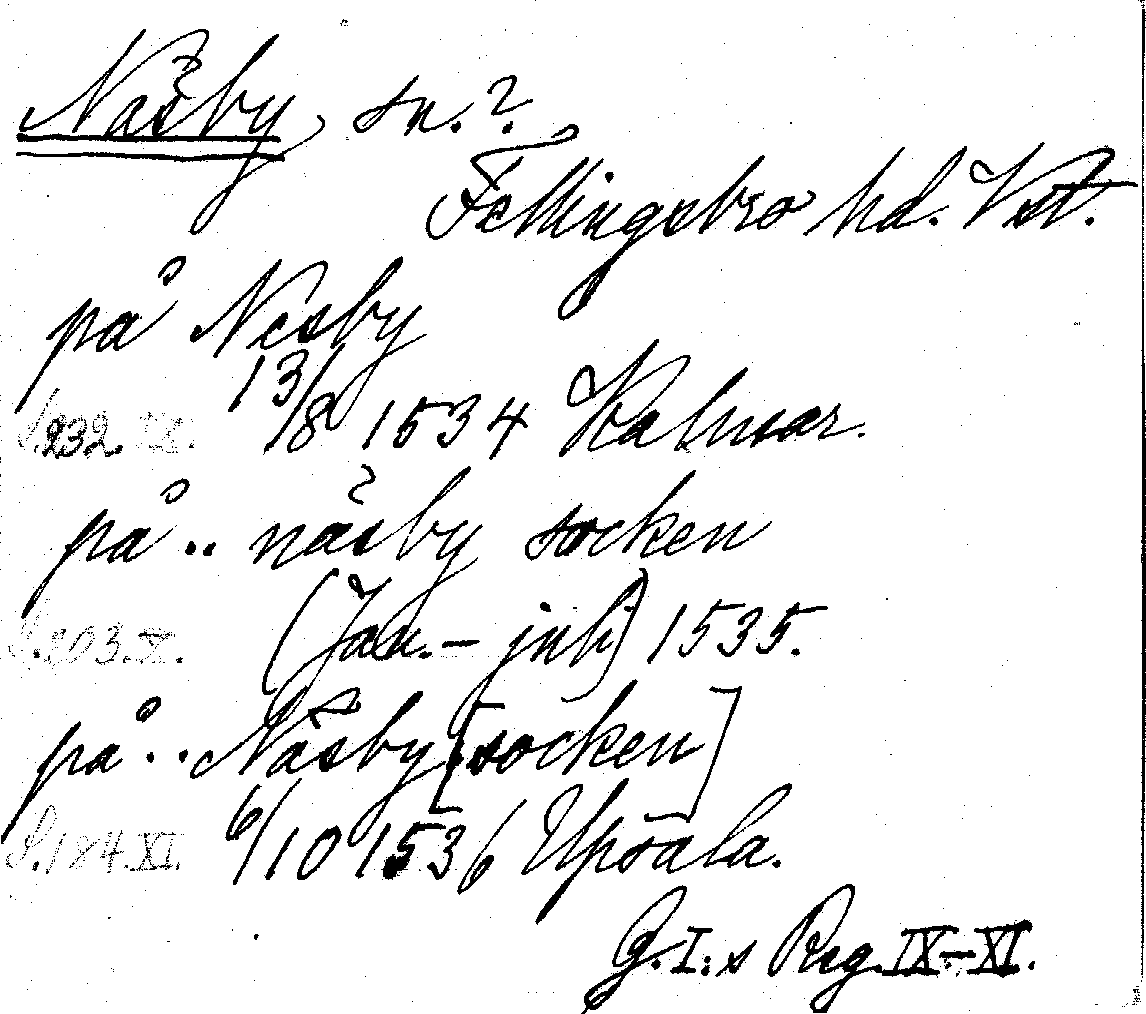 Näsby, sn.?
Fellingsbro hd. Vstl.
på Nesby
S. 232. IX. 13/8 1534 Kalmar.
på .. näsby socken
S. 203. X. (Jan. – juli) 1535.
på .. Näsby [socken]
S. 184. XI. 6/10 1536 Upsala.
G. I:s Reg. IX–XI.